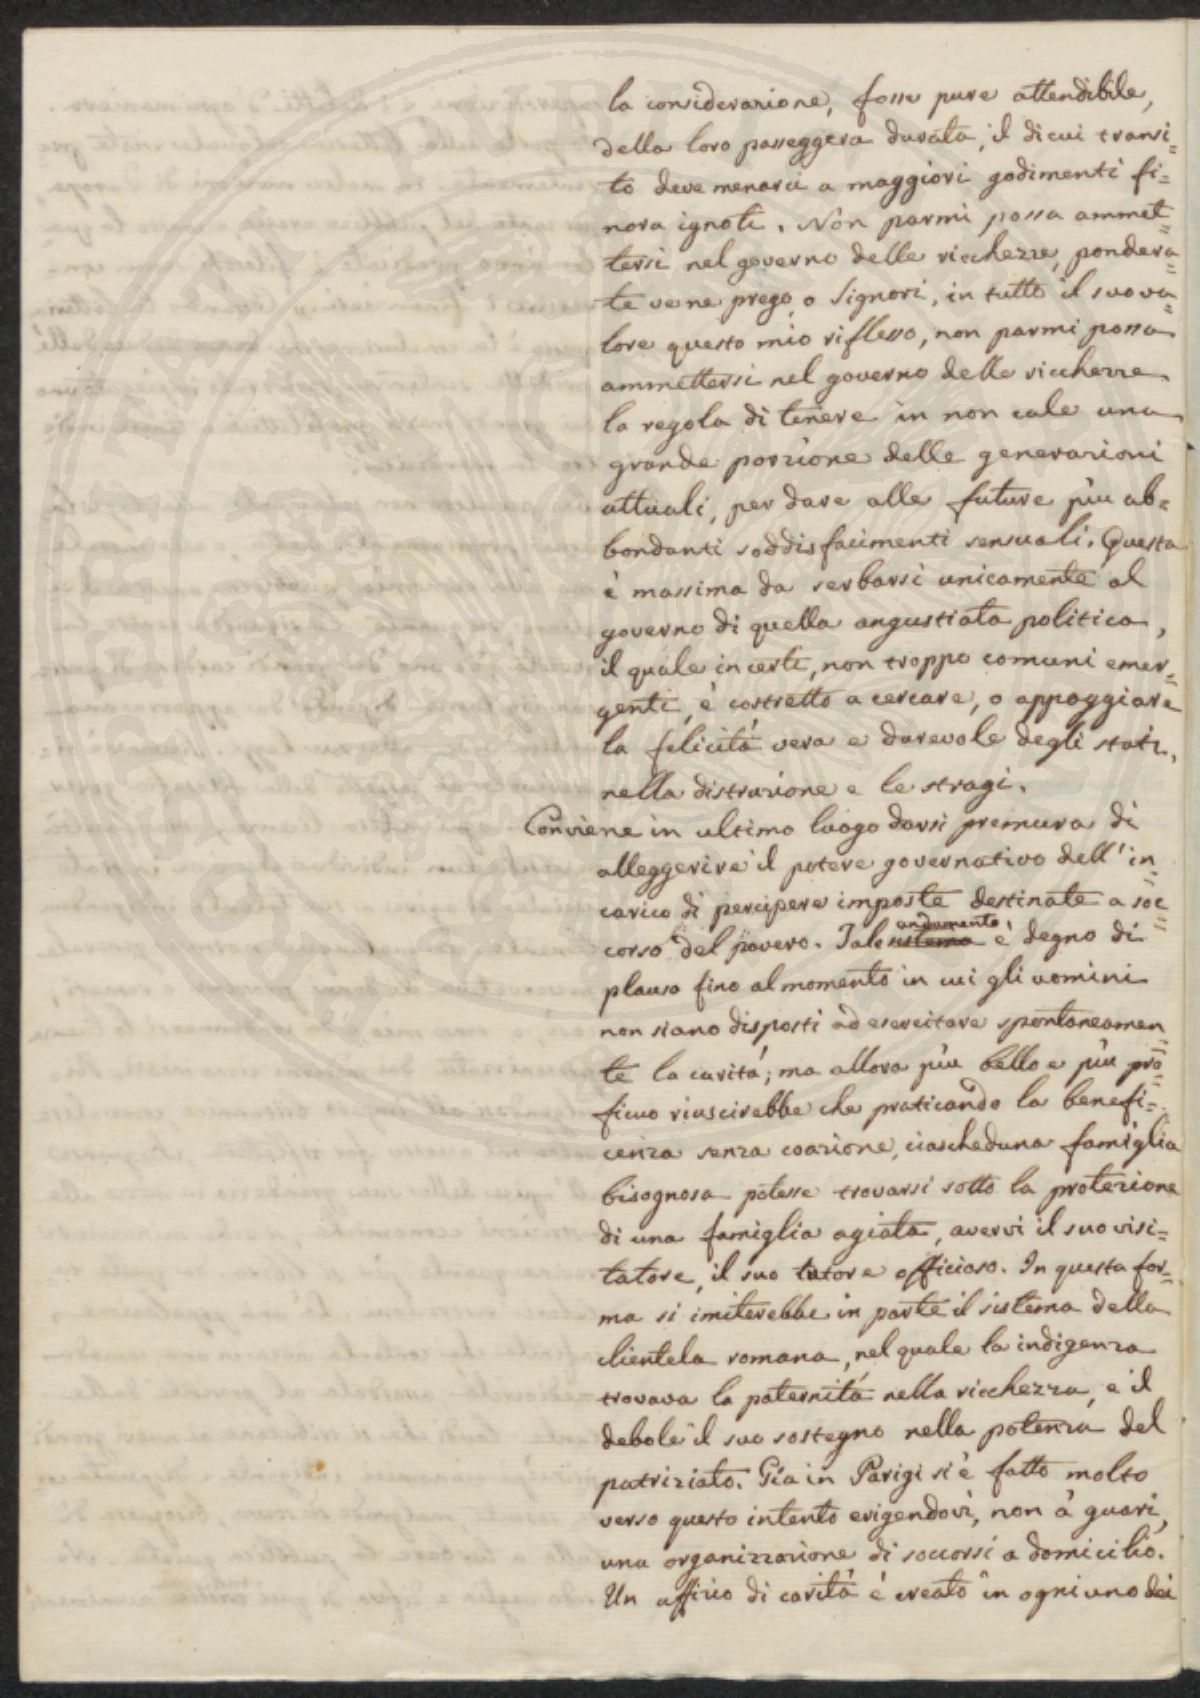 la considerazione, fosse pure attendibile,
della loro passeggera durata, il di cui transi=
to deve menarci a maggiori godimenti fi=
nora ignoti. Non parmi possa ammet=
tersi nel governo delle ricchezze, pondera=
te vene prego, o Signori, in tutto il suo va=
lore questo mio riflesso, non parmi possa
ammettersi nel governo delle ricchezze
la regola di tenere in non cale una
grande porzione delle generazioni
attuali, per dare alle future più ab=
bondanti soddisfacimenti sensuali. Questa
è massima da serbarsi unicamente al
governo di quella angustiata politica,
il quale in certi, non troppo comuni emer=
genti, è costretto a cercare, o appoggiare
la felicità vera e durevole degli stati,
nella distruzione e le stragi.
Conviene in ultimo luogo darsi premura di
alleggerire il potere governativo dell' in=
carico di percipere imposte destinate a soc=
corso del povero. Tale sistema andamento è degno di
plauso fino al momento in cui gli uomini
non siano disposti ad esercitare spontaneamen=
te la carità; ma allora più bello e più pro=
ficuo riuscirebbe che praticando la benefi=
cenza senza coazione, ciascheduna famiglia
bisognosa potesse trovarsi sotto la protezione
di una famiglia agiata, avervi il suo visi=
tatore, il suo tutore officioso. In questa for=
ma si imiterebbe in parte il sistema della
clientela romana, nel quale la indigenza
trovava la paternità nella ricchezza, e il
debole il suo sostegno nella potenza del
patriziato. Già in Parigi si è fatto molto
verso questo intento erigendovi, non à guari,
una organizzazione di soccorsi a domicilio.
Un afficio di carità è creato in ogni uno dei